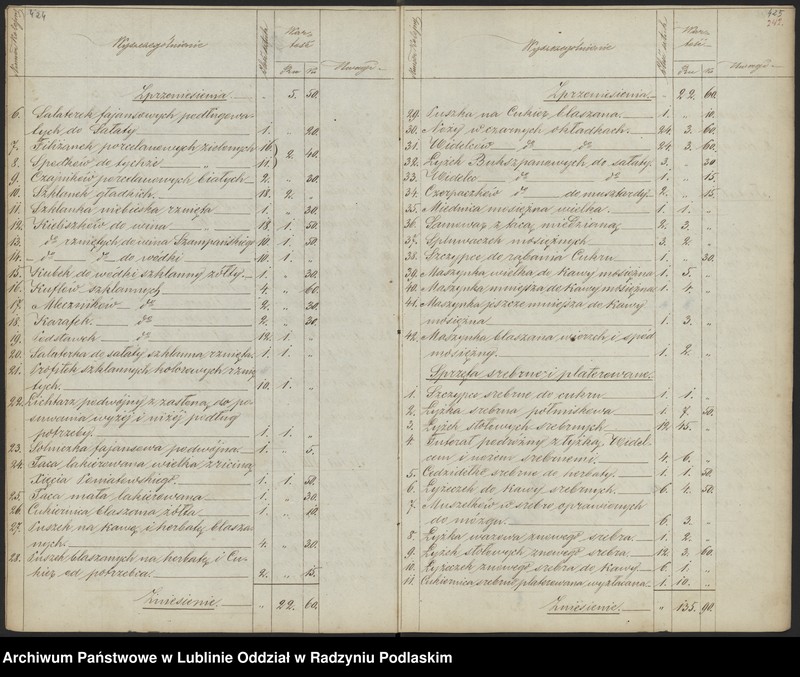 424
Numer Kolejny
Wyszczególnienie
Ilość sztuk
War-
tość
Rsr
K.
Uwagi
Z przeniesienia „ 5. 50.
6. Salaterek fajansowych podługowa-
tych do Sałaty 1. „ 20.
7. Filiżanek porcelanowych zielonych 10.
8. Spodków do tychże „ 11. 2. 40.
9. Czajników porcelanowych białych 2. „ 30.
10. Szklanek gładkich 18. 2. „
11. Szklanka niebieska rznięta 1. „ 30.
12. Kieliszków do wina 18. 1. 50.
13. do rzniętych do wina Szampańskiego 10. 1. 50.
14. do do do wódki 10. 1. „
15. Kubek do wódki szklanny żółty 1. „ 30.
16. Kuflów szklannych 4. „ 60.
17. Mleczników do 2. „ 30.
18. Karafek do 2. „ 30.
19. Podstawek do 12. 1. „
20. Salaterka do sałaty szklanna rznięta 1. 1. „
21. Profitek szklannych kolorowych rznię-
tych 10. 1. „
22. Lichtarz podwójny z zasłoną do po-
suwania wyżej i niżej podług
potrzeby 1. 1. „
23. Solniczka fajansowa podwójna 1. „ 5.
24. Taca lakierowana wielka z ryciną
Xięcia Poniatowskiego 1. 1. 50.
25. Taca mała lakierowana 1. „ 30.
26. Cukiernica blaszana żółta 1. „ 10.
27. Puszek na kawę i herbatę blasza-
nych 4. „ 30.
28. Puszek blaszanych na herbatę i Cu-
kier od potrzebca 2. „ 15.
Zniesienie „ 22. 60.
425
Numer Kolejny
Wyszczególnienie
Ilość sztuk
War-
tość
Rsr
K.
Uwagi
Z przeniesienia „ 22. 60.
29. Puszka na Cukier blaszana 1. „ 10.
30. Noży w czarnych okładkach 24. 3. 60.
31. Widelców do do 24. 3. 60.
32. Łyżek Bukszpanowych do sałaty 3. „ 30
33. Widelec do do 1. „ 15.
34. Czerpaczków do do musztardy 2. „ 15.
35. Miednica mosiężna wielka 1. 1. „
36. Samowar z tacą miedzianą 2. 3. „
37. Spluwaczek mosiężnych 3. 2. „
38. Szczypce do rąbania Cukru 1. „ 30.
39. Maszynka wielka do kawy mosiężna 1. 5. „
40. Maszynka mniejsza do kawy mosiężna 1. 4. „
41. Maszynka jeszcze mniejsza do kawy
mosiężna 1. 3. „
42. Maszynka blaszana, wierzch i spód
mosiężny 1. 2. „
Sprzęta srebrne i platerowane
1. Szczypce srebrne do cukru 1. 1. „
2. Łyżka srebrna półmiskowa 1. 7. 50.
3. Łyżek stołowych srebrnych 12. 45. „
4. Futerał podróżny z łyżką, Widel-
cem i nożem srebrnemi 4. 6. „
5. Cedzidełko srebrne do herbaty 1. 1. 50.
6. Łyżeczek do kawy srebrnych 6. 4. 50.
7. Muszelków w srebro oprawionych
do mózgu 6. 3. „
8. Łyżka wazowa z nowego srebra 1. 2. „
9. Łyżek stołowych z nowego srebra 12. 3. 60.
10. Łyżeczek z nowego srebra do kawy 6. 1. „
11. Cukiernica srebrno platerowana wyzłacana 1. 10. „
Zniesienie „ 135. 90.
Archiwum Państwowe w Lublinie Oddział w Radzyniu Podlaskim